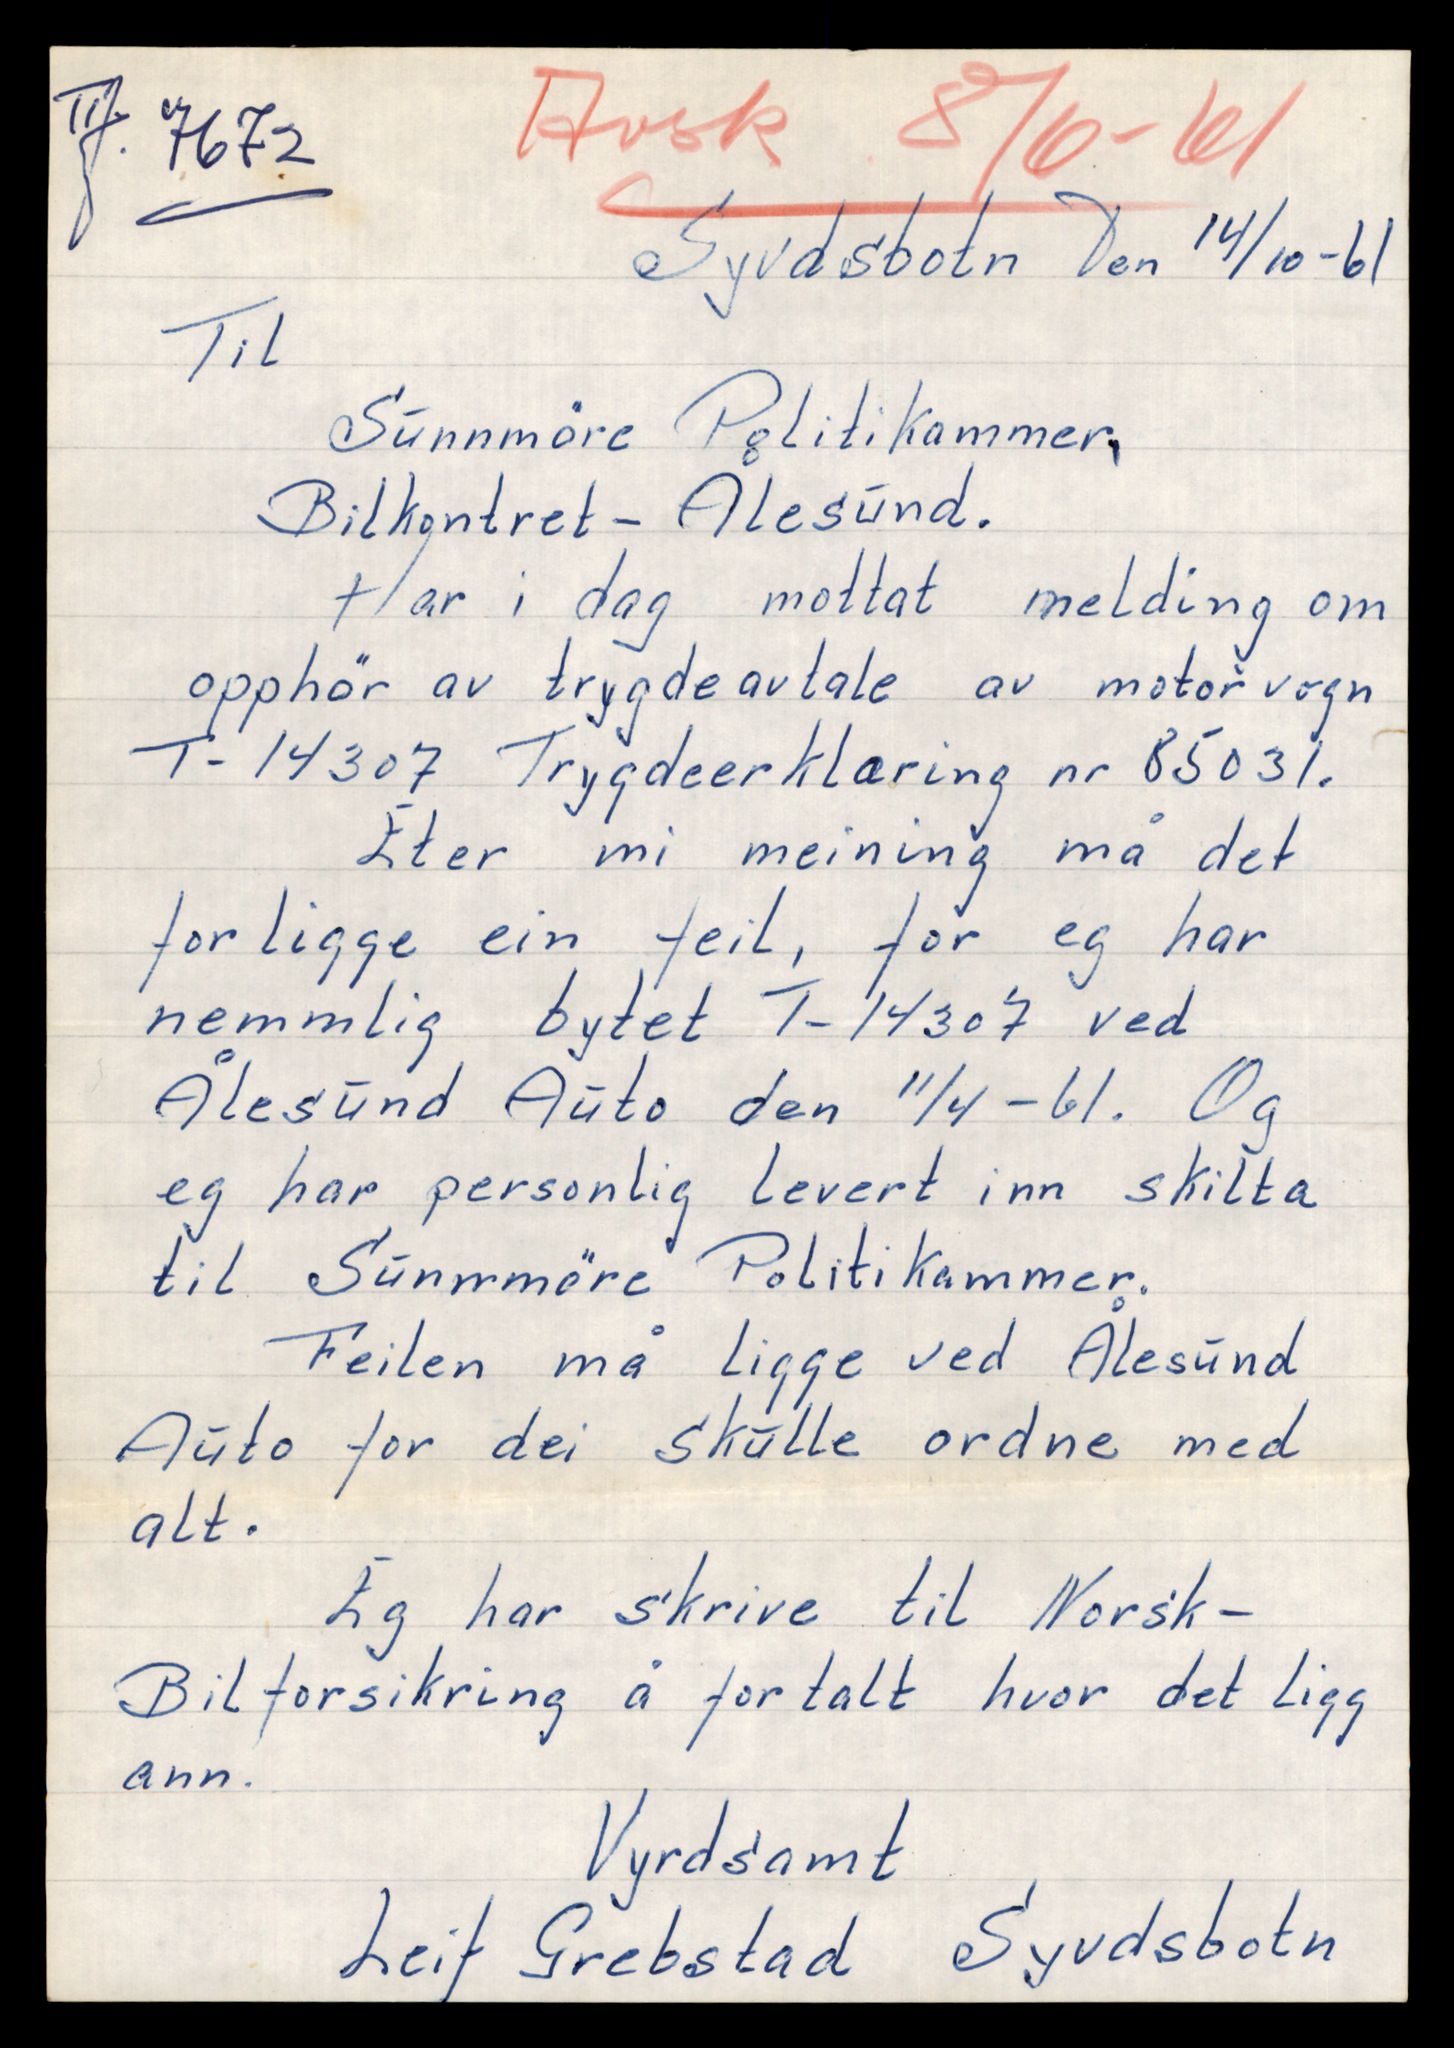 Tlf. 7672
Avsk 8/10-61
Syvdsbotn Den 14/10-61
Til
Sunnmöre Politikammer,
Bilkontret - Ålesund.
Har i dag mottat melding om
opphör av trygdeavtale av motorvogn
T-14307 Trygdeerklæring nr 85031.
Eter mi meining må det
forligge ein feil, for eg har
nemmlig bytet T-14307 ved
Ålesund Auto den 11/4-61. Og
eg har personlig levert inn skilta
til Sunnmöre Politikammer.
Feilen må ligge ved Ålesund
Auto for dei skulle ordne med
alt.
Eg har skrive til Norsk-
Bilforsikring å fortalt hvor det ligg
ann.
Vyrdsamt
Leif Grebstad Syvdsbotn